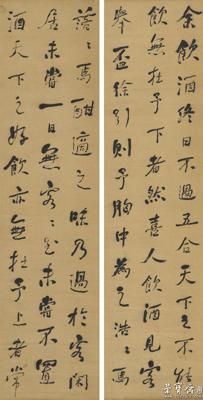 余飲酒終日不過五合天下之不能
飲無在予下者然喜人飲酒見客
舉盃徐引則予胸中為之浩〻焉
落〻焉酣適之味乃過於客閑
居未嘗一日無客〻至未嘗不置
酒天下之好飲亦無在予上者常